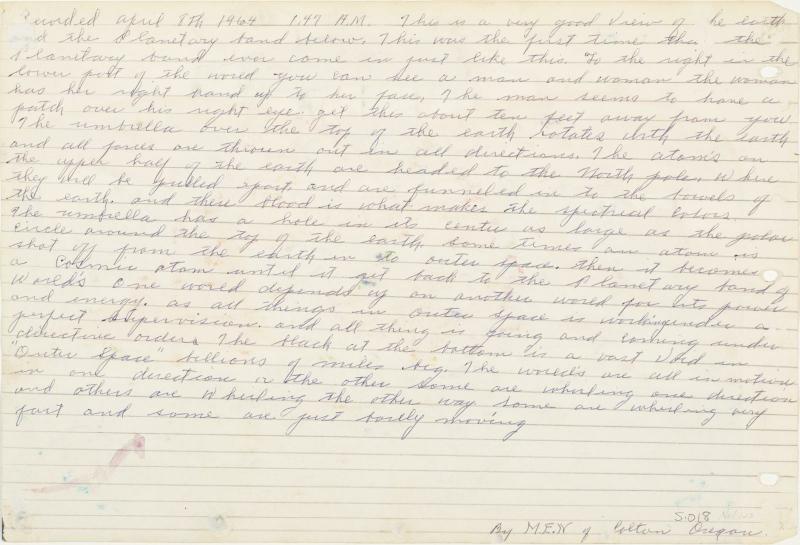 Recorded april 8th 1964 1.47 A.M. This is a very good View of he earth
and the Planetary band below. This was the first time tha the
Planetary band ever come in just like this. To the right in the
lower part of the world you can see a man and woman the woman
has her right hand up to her face, The man seems to have a
patch over his right eye. get this about ten feet away from you
The umbrella over the top of the earth rotates with the earth
and all forces are thrown out in all directions. The atom's on
the upper half of the earth are headed to the North pole. Where
they will be pulled apart. and are funneled in to the bowels of
the earth. and there blood is what makes the spectrial Colors.
The umbrella has a hole in its center as large as the polar
Circle around the top of the earth. Some times an atom is
shot off from the earth in to outer space. then it becomes
a Cosmic atom until it get back to the Planetary band of
World's One world depends up on another world for its power
and energy. as all things in outer space is working under a
perfect supervision. and all thing is going and coming under
directive orders. The black at the bottom is a vast void in
"Outer Space" billions of miles big. The world's are all in motion
in one direction or the other some are whirling one direction
and others are Whirling the other way some are whirling very
fast and some are just barly moving
S.018
By M.E.W of Colton Oregon.